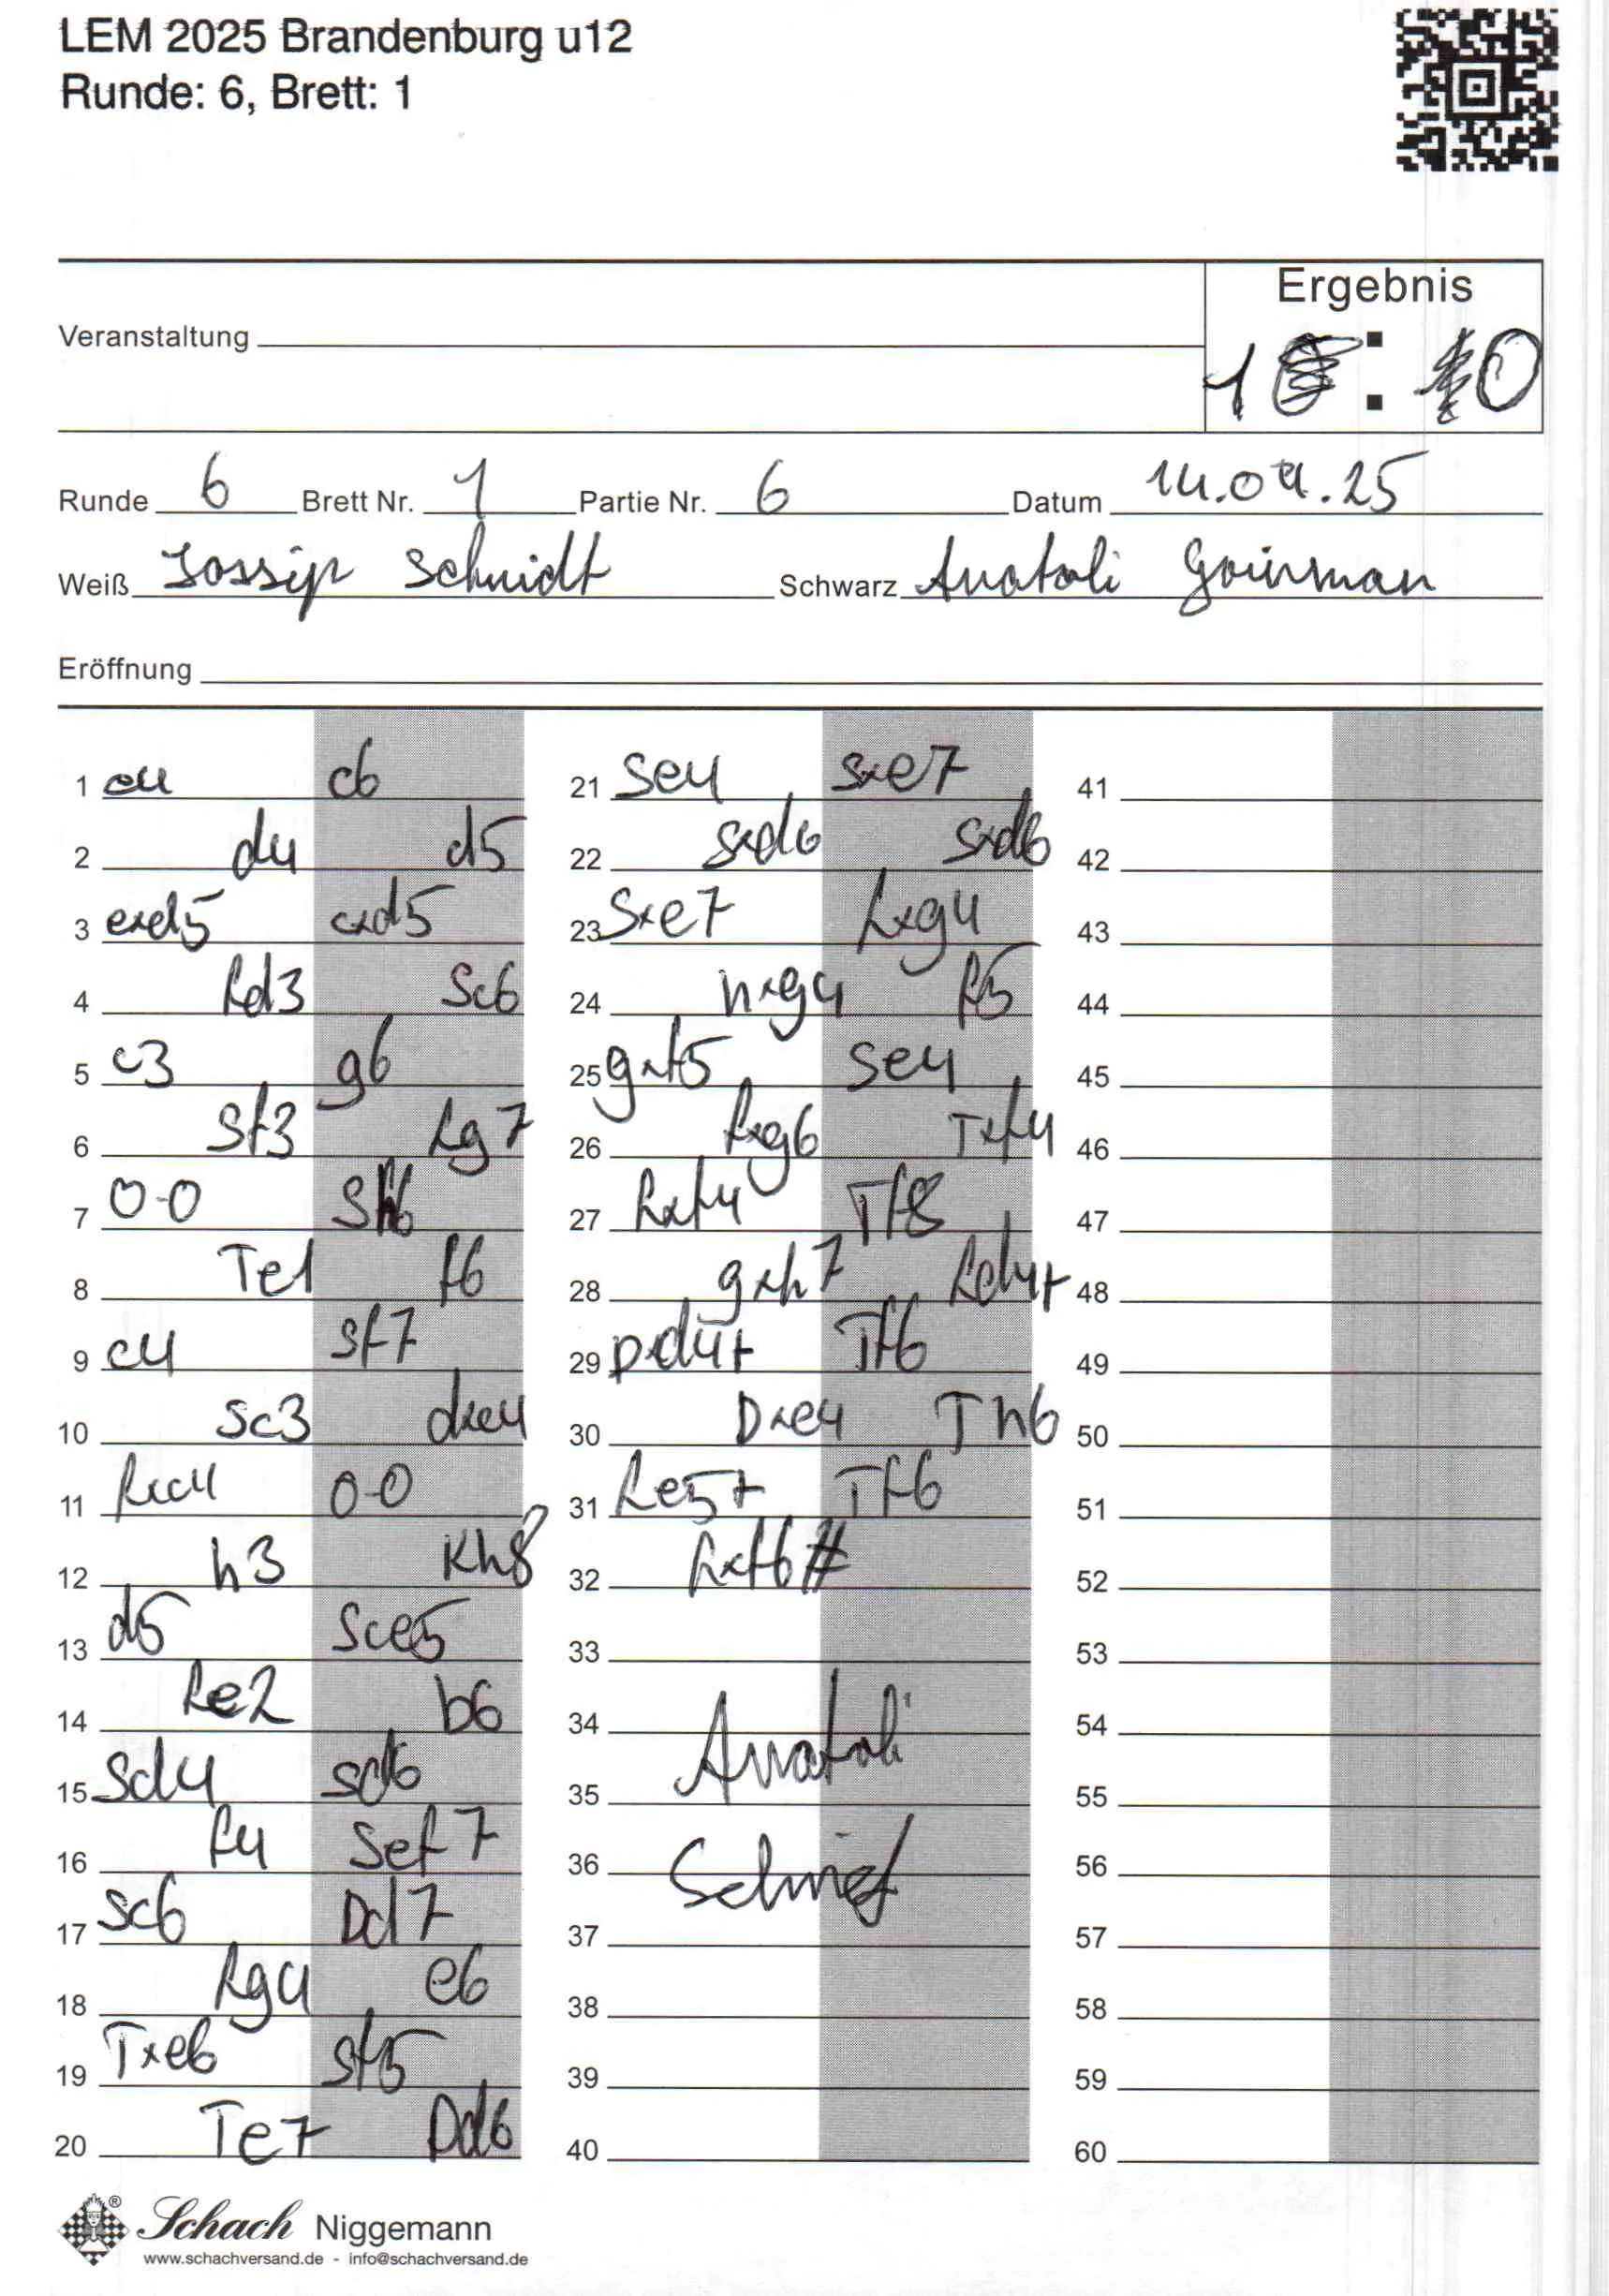 LEM 2025 Brandenburg u12
Runde: 6, Brett: 1
Ergebnis
Veranstaltung
1 : 0
Runde 6 Brett Nr. 1 Partie Nr. 6 Datum 14.04.25
Weiß Jossip Schmidt Schwarz Anatoli Gainman
Eröffnung
1 e4 c6
2 d4 d5
3 exd5 cxd5
4 Ld3 Sc6
5 c3 g6
6 Sf3 Lg7
7 0-0 Sh6
8 Te1 f6
9 c4 Sf7
10 Sc3 dxc4
11 Lxc4 0-0
12 h3 Kh8
13 d5 Sce5
14 Le2 b6
15 Sd4 Sd6
16 f4 Sef7
17 Sc6 Dd7
18 Lg4 e6
19 Txe6 Sf5
20 Te7 Dd6
21 Se4 Sxe7
22 Sxd6 Sxd6
23 Sxe7 Lxg4
24 hxg4 f5
25 gxf5 Se4
26 fxg6 Txf4
27 Lxf4 Tf8
28 gxh7 Ld4+
29 Dxd4+ Tf6
30 Dxe4 Th6
31 Le5+ Tf6
32 Lxf6#
33
34
Anatoli
35
36
Schmidt
37
38
39
40
41
42
43
44
45
46
47
48
49
50
51
52
53
54
55
56
57
58
59
60
Schach Niggemann
www.schachversand.de - info@schachversand.de